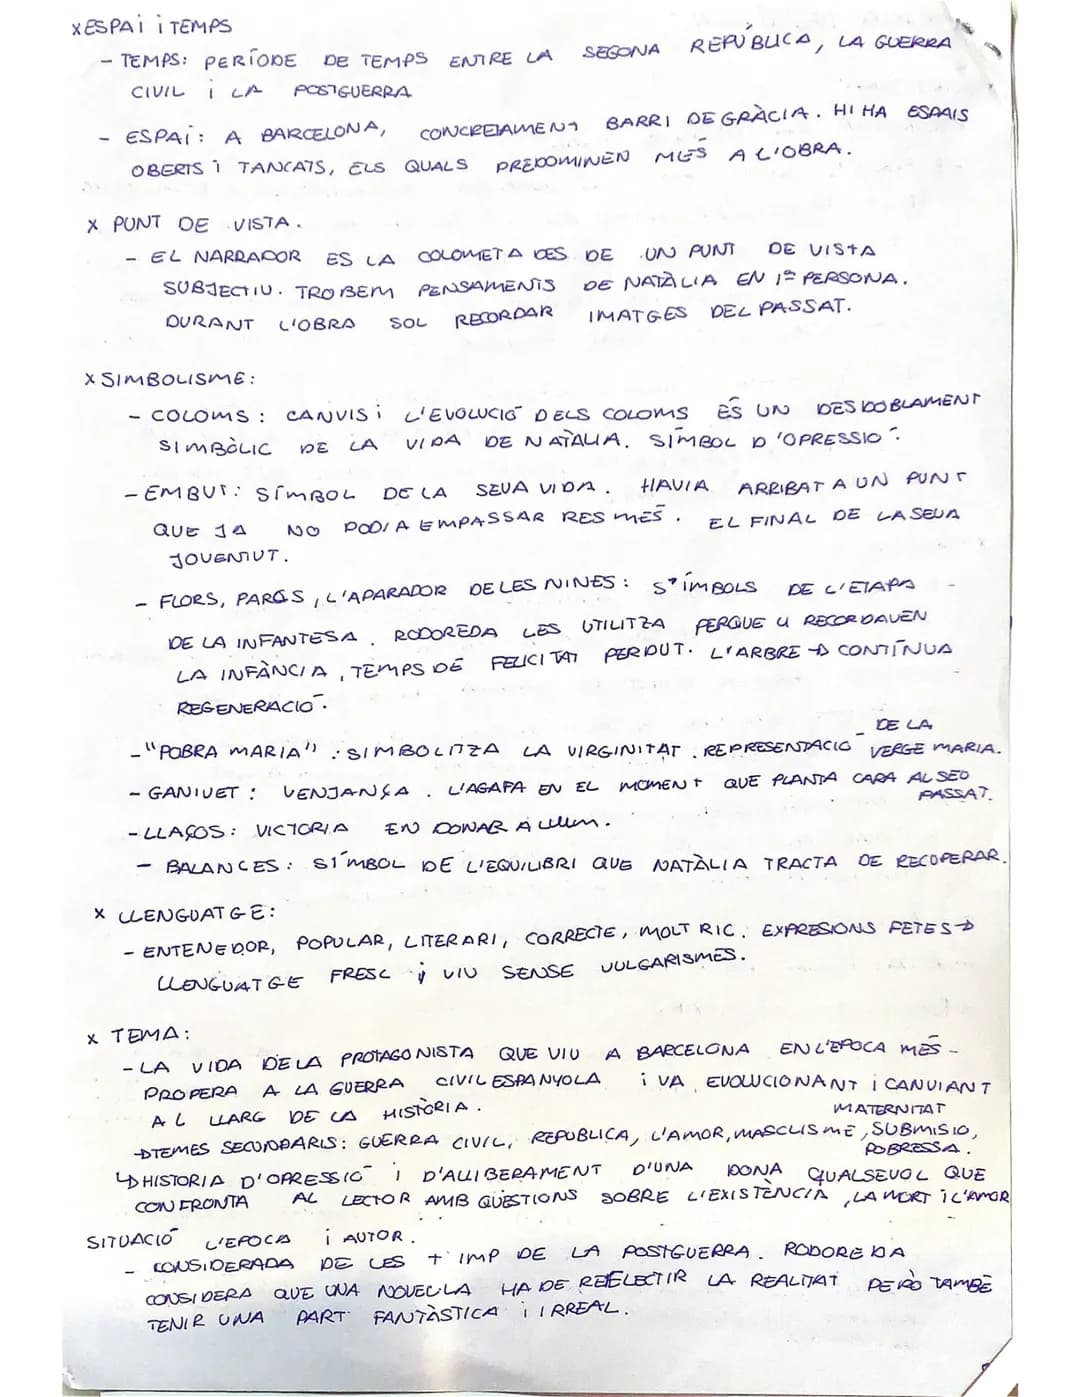 XESPAI i TEMPS
- TEMPS: PERÍODE DE TEMPS ENTRE LA SEGONA REPÚBLICA, LA GUERRA
CIVIL i LA POSTGUERRA
- ESPAI: A BARCELONA, CONCRETAMENT BARRI DE GRÀCIA. HI HA ESPAIS
OBERTS i TANCATS, ELS QUALS PREDOMINEN MÉS A L'OBRA.
X PUNT DE VISTA.
- EL NARRADOR ES LA COLOMETA DES DE UN PUNT DE VISTA
SUBJECTIU. TROBEM PENSAMENTS DE NATÀLIA EN 1ª PERSONA.
DURANT L'OBRA SOL RECORDAR IMATGES DEL PASSAT.
X SIMBOLISME:
- COLOMS: CANVIS i L'EVOLUCIÓ DELS COLOMS ÉS UN DESDOBLAMENT
SIMBÒLIC DE LA VIDA DE NATALIA. SÍMBOL D'OPRESSIÓ.
- EMBUT: SÍMBOL DE LA SEUA VIDA. HAVIA ARRIBAT A UN PUNT
QUE JA NO PODIA EMPASSAR RES MÉS. EL FINAL DE LA SEUA
JOVENTUT.
- FLORS, PARCS, L'APARADOR DE LES NINES: SÍMBOLS DE L'ETAPA
DE LA INFANTESA. RODOREDA LES UTILITZA PERQUE LI RECORDAVEN
LA INFÀNCIA, TEMPS DE FELICITAT PERDUT. L'ARBRE → CONTÍNUA
REGENERACIÓ.
- "POBRA MARIA": SIMBOLITZA LA VIRGINITAT. REPRESENTACIÓ DE LA
VERGE MARIA.
- GANIVET: VENJANÇA. L'AGAFA EN EL MOMENT QUE PLANTA CARA AL SEO
PASSAT.
- LLAÇOS: VICTORIA EN DONAR A LLUM.
- BALANCES: SÍMBOL DE L'EQUILIBRI QUE NATÀLIA TRACTA DE RECOPERAR.
X LLENGUATGE:
- ENTENEDOR, POPULAR, LITERARI, CORRECTE, MOLT RIC. EXPRESIONS FETES →
LLENGUATGE FRESC i VIU SENSE VULGARISMES.
X TEMA:
- LA VIDA DE LA PROTAGONISTA QUE VIU A BARCELONA EN L'EPOCA MÉS
PROPERA A LA GUERRA CIVIL ESPANYOLA i VA EVOLUCIONANT i CANVIANT
AL LLARG DE LA HISTÒRIA.
MATERNITAT
→ TEMES SECUNDARIS: GUERRA CIVIL, REPUBLICA, L'AMOR, MASCLISME, SUBMISIO,
POBRESSA.
↳ HISTORIA D'OPRESSIÓ i D'ALLIBERAMENT D'UNA DONA QUALSEVOL QUE
CONFRONTA AL LECTOR AMB QÜESTIONS SOBRE L'EXISTÈNCIA, LA MORT i L'AMOR
SITUACIÓ L'EPOCA i AUTOR.
- CONSIDERADA DE LES + IMP DE LA POSTGUERRA. RODOREDA
CONSIDERA QUE UNA NOVEL·LA HA DE REFLECTIR LA REALITAT PERÒ TAMBÉ
TENIR UNA PART FANTÀSTICA i IRREAL.